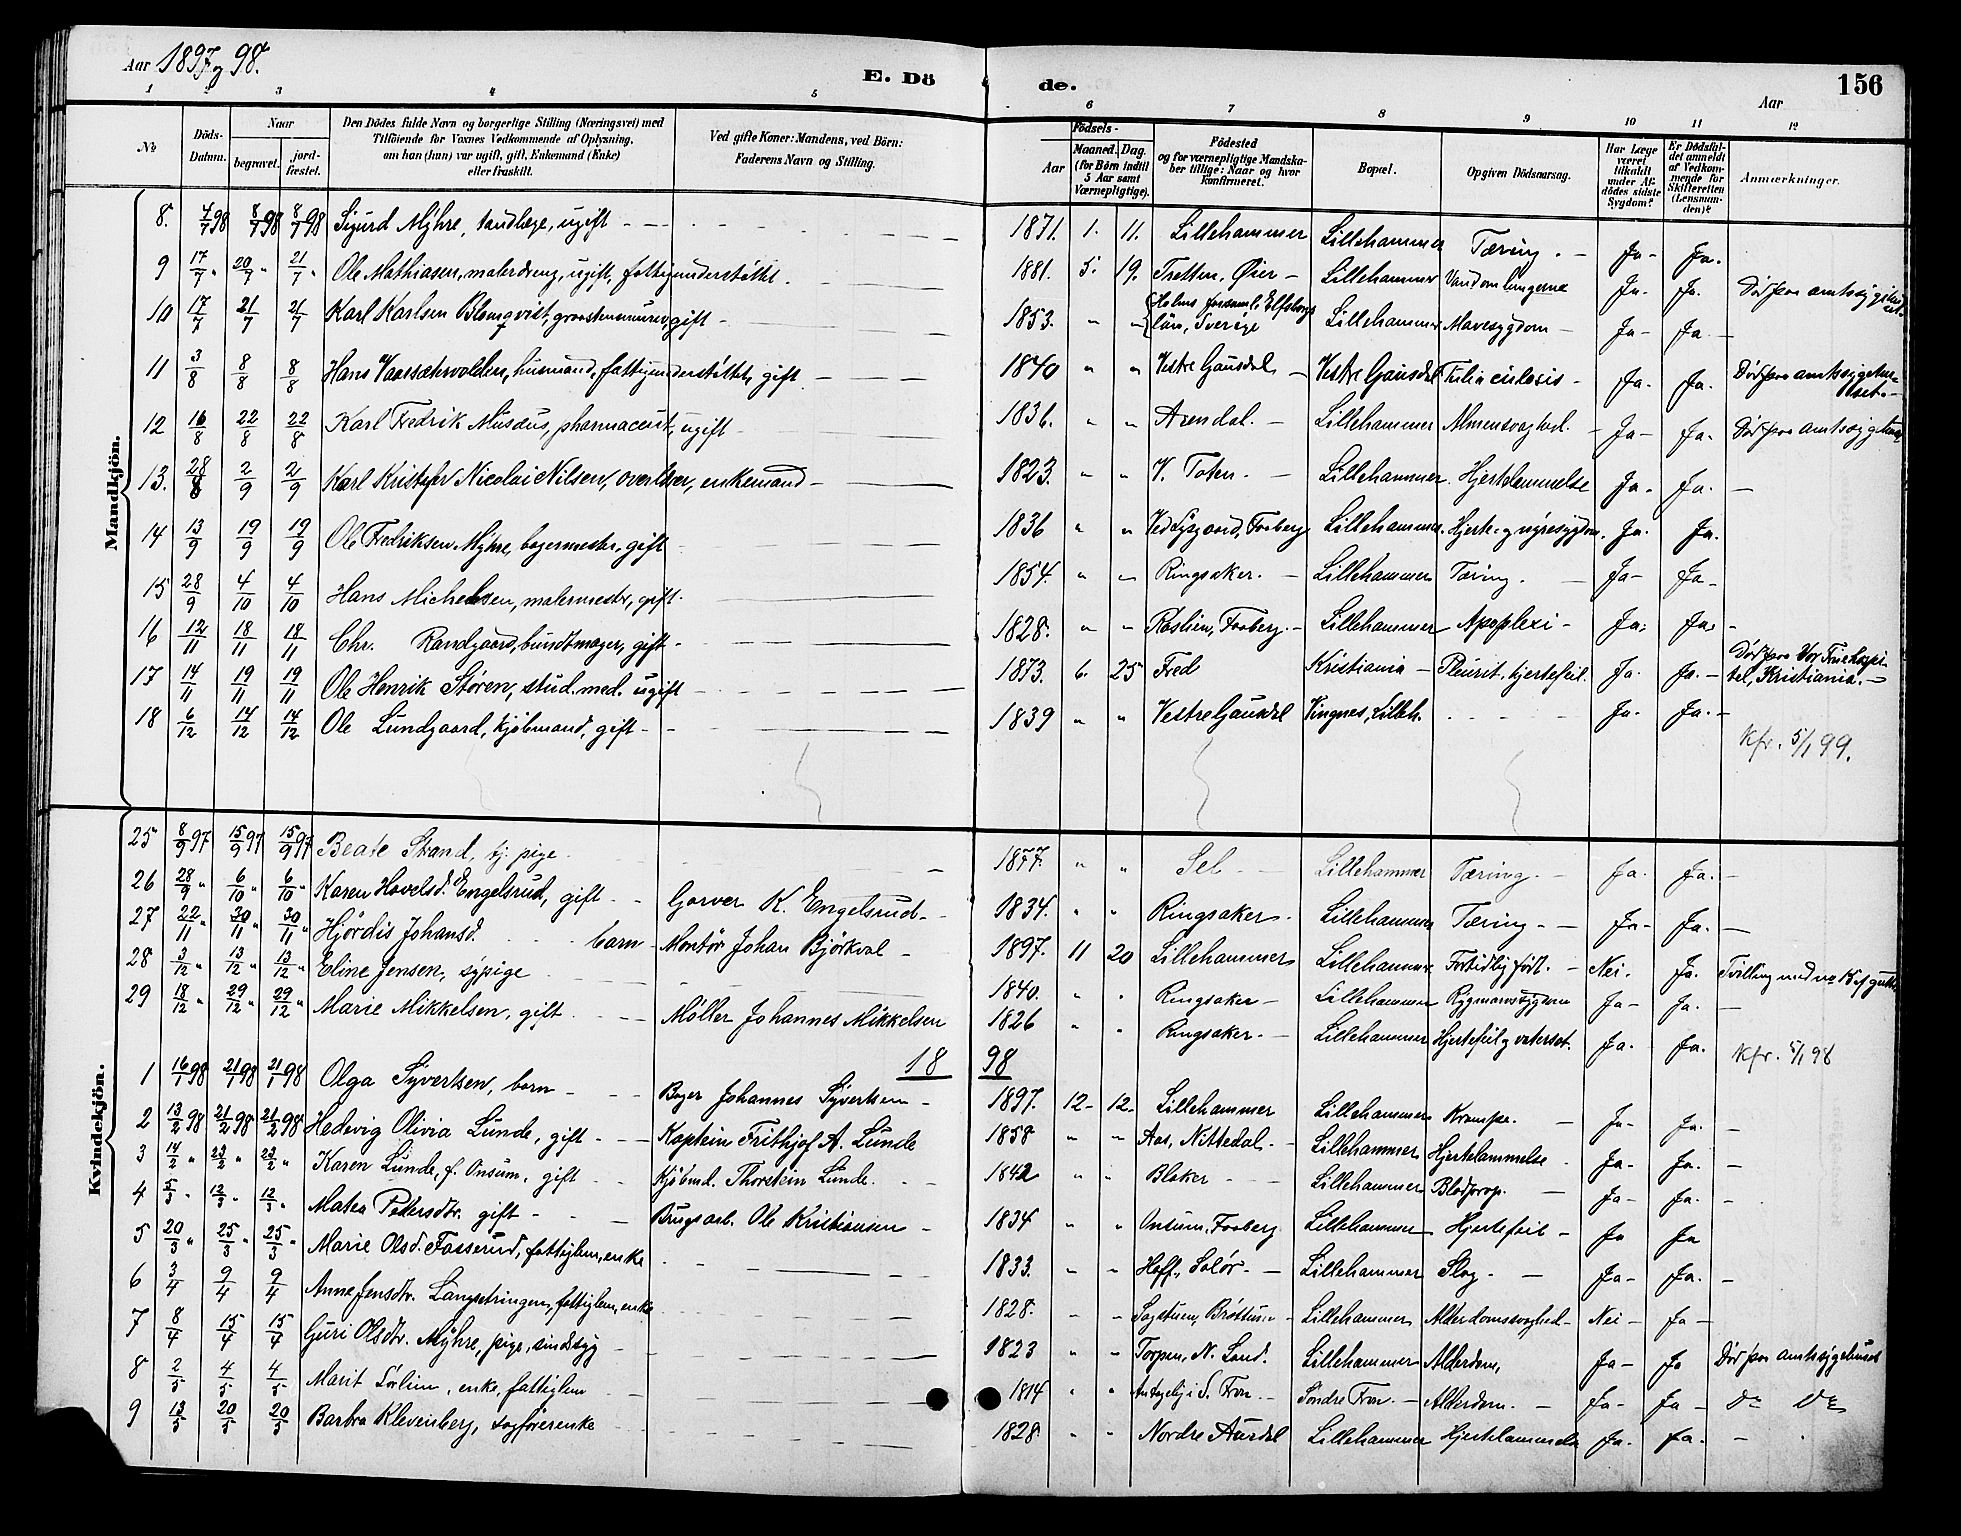 Aar 1897 og 98.
E. Dö
de.
156
Aar
1 2 3 4 5 6 7 8 9 10 11 12
No
Döds-Datum.
Naar
begravet.
jordfæstet.
Den Dödes fulde Navn og borgerlige Stilling (Næringsvei) med Tilföiende for Voxnes Vedkommende af Oplysning, om han (hun) var ugift, gift, Enkemand (Enke) eller fraskilt.
Ved gifte Koner: Mandens, ved Börn: Faderens Navn og Stilling.
Födsels-
Aar
Maaned. Dag.
(for Börn indtil 5 Aar samt Værnepligtige).
Födested og for værnepligtige Mandskaber tillige: Naar og hvor konfirmeret.
Bopæl.
Opgiven Dödsaarsag.
Har Læge været tilkaldt under Afdödes sidste Sygdom?
Er Dödsfaldet anmeldt af Vedkommende for Skifteretten (Lensmanden)?
Anmærkninger.
Mandkjön.
8. 4/7 98 8/7 98 8/7 98 Sigurd Myhre, tandlæge, ugift 1871. 1. 11. Lillehammer Lillehammer Tæring. Ja Ja.
9 17/7 " 20/7 " 21/7 " Ole Mathiasen, malerdreng, ugift, fattigunderstöttet. 1881. 5. 19. Tretten, Øier Lillehammer Vand om lungerne Ja. Ja. Död paa amtssygehuset.
10 17/7 21/7 21/7 Karl Karlsen Blomqvist, graastensmurer, gift 1853. " " Holms forsaml. Elfsborgs län, Sverige Lillehammer Mavesygdom Ja Ja
11 3/8 8/8 8/8 Hans Vaarsætervolden, husmand, fattigunderstöttet, gift 1840 " " Vestre Gausdal Vestre Gausdal Ja. Ja. Död paa amtssygehuset.
12 16/8 22/8 22/8 Karl Fredrik Musæus, pharmaceut, ugift 1836. " " Arendal. Lillehammer Almensvaghed. Ja Ja. Död paa amtssygehuset
13. 28/8 2/9 2/9 Karl Kristofer Nicolai Nilsen, overlærer, enkemand 1823. " " V. Toten. Lillehammer. Hjertelammelse Ja. Ja.
14 13/9 19/9 19/9 Ole Fredriksen Myhre, bagermester, gift 1836 " " Ved Lysgaard, Faaberg Lillehammer. Hjerte- og nyresygdom. Ja. Ja.
15 28/9 4/10 4/10 Hans Michelsen, malermester, gift. 1854. " " Ringsaker. Lillehammer Tæring. Ja Ja
16 12/11 18/11 18/11 Chr. Randgaard, bundtmager, gift 1828. " " Roslien, Faaberg. Lillehammer Apoplexi Ja. Ja.
17 14/11 19/11 19/11 Ole Henrik Støren, stud. med. ugift 1873. 6. 25 Fred Kristiania Pleurit, hjertefeil. Ja. Ja. Död paa Vor Frue hospital, Kristiania.
18 6/12 14/12 14/12 Ole Lundgaard, kjöbmand, gift 1839 " " Vestre Gausdal Vingnes, Lilleh. Ja. Ja.
Kfr. 5/1 99.
Kvindekjön.
25 8/9 97 15/9 97 15/9 97 Beate Strand, tj. pige 1877. " " Sel Lillehammer Tæring. Ja. Ja.
26 28/9 " 6/10 " 6/10 " Karen Hovelsd. Engelsrud, gift Garver K. Engelsrud 1834. " " Ringsaker. Lillehammer Tæring. Ja Ja.
27 22/11 " 30/11 " 30/11 " Hjördis Johansd. barn Montör Johan Björkval 1897. 11 20 Lillehammer Lillehammer Fortidlig födt. Nei. Ja. Tvilling med no 15 af gutter
28 3/12 " 13/12 " 13/12 " Eline Jensen, sypige 1840. " " Ringsaker Lillehammer Rygmarvssygdom Ja Ja.
29 18/12 " 29/12 " 29/12 " Marie Mikkelsen, gift Møller Johannes Mikkelsen 1826 " " Ringsaker. Lillehammer Hjertefeil og vatersot. Ja. Ja. Kfr. 5/1 98
18 98
1 16/1 98 21/1 98 21/1 98 Olga Syvertsen, barn Bager Johannes Syvertsen 1897. 12 12. Lillehammer Lillehammer Krampe. Ja Ja.
2 13/2 98 21/2 98 21/2 98 Hedevig Olivia Lunde, gift Kaptein Frithjof A. Lunde 1858 " " Aas, Nittedal. Lillehammer Hjertelammelse Ja Ja.
3 14/2 " 23/2 " 23/2 " Karen Lunde, f. Onsum, gift Kjöbmd. Thorstein Lunde. 1842 " " Blaker Lillehammer Blodprop. Ja Ja.
4 5/3 " 12/3 " 12/3 " Matea Petersdtr. gift Brugsarb. Ole Kristiansen 1834 " " Onsum, Faaberg Lillehammer Hjertefeil Ja Ja
5 20/3 " 25/3 " 25/3 " Marie Olsd. Fosserud, fattiglem, enke 1833. " " Hoff, Solör. Lillehammer Slag. Ja Ja.
6 3/4 9/4 9/4 Anne Jensdtr. Langsetringen, fattiglem, enke 1828. " " Sagstuen, Bröttum Lillehammer Alderdomssvaghed Nei Ja
7 8/4 15/4 15/4 Guri Olsdtr. Myhre, pige, sindssyg 1823 " " Torpen, N. Land. Lillehammer Alderdom, Ja Ja Död paa amtssygehuset
8 2/5 4/5 4/5 Marit Sörlien, enke, fattiglem 1814 " " S. Fron. Sondre Fron. Alderdom. Ja Ja Do Do
9 13/5 20/5 20/5 Barbra Klevenberg, sagförerenke 1828 " " Nordre Aurdal Lillehammer Hjertelammelse Ja. Ja.